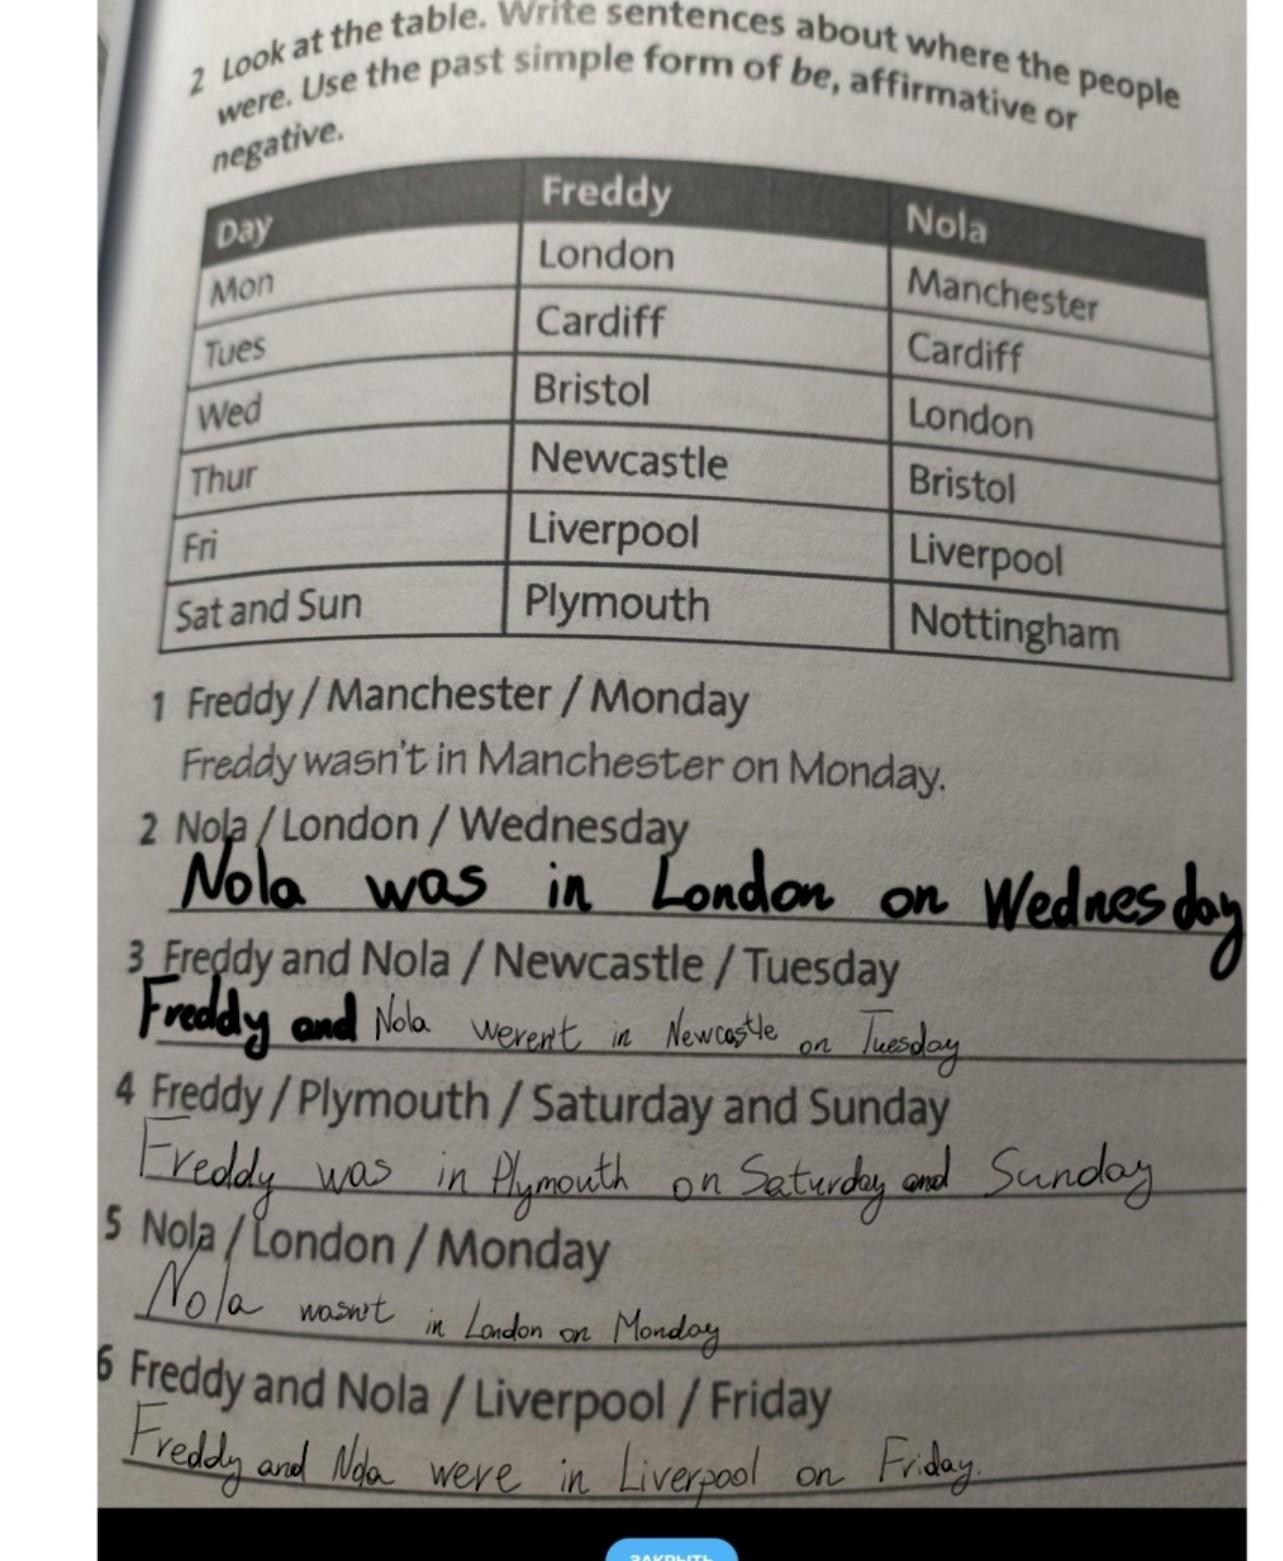 2 Look at the table. Write sentences about where the people
were. Use the past simple form of be, affirmative or
negative.
Day Freddy Nola
Mon London Manchester
Tues Cardiff Cardiff
Wed Bristol London
Thur Newcastle Bristol
Fri Liverpool Liverpool
Sat and Sun Plymouth Nottingham
1 Freddy / Manchester / Monday
Freddy wasn't in Manchester on Monday.
2 Nola / London / Wednesday
Nola was in London on Wednesday
3 Freddy and Nola / Newcastle / Tuesday
Freddy and Nola weren't in Newcastle on Tuesday
4 Freddy / Plymouth / Saturday and Sunday
Freddy was in Plymouth on Saturday and Sunday
5 Nola / London / Monday
Nola wasn't in London on Monday
6 Freddy and Nola / Liverpool / Friday
Freddy and Nola were in Liverpool on Friday.
ЗАКРЫТЬ